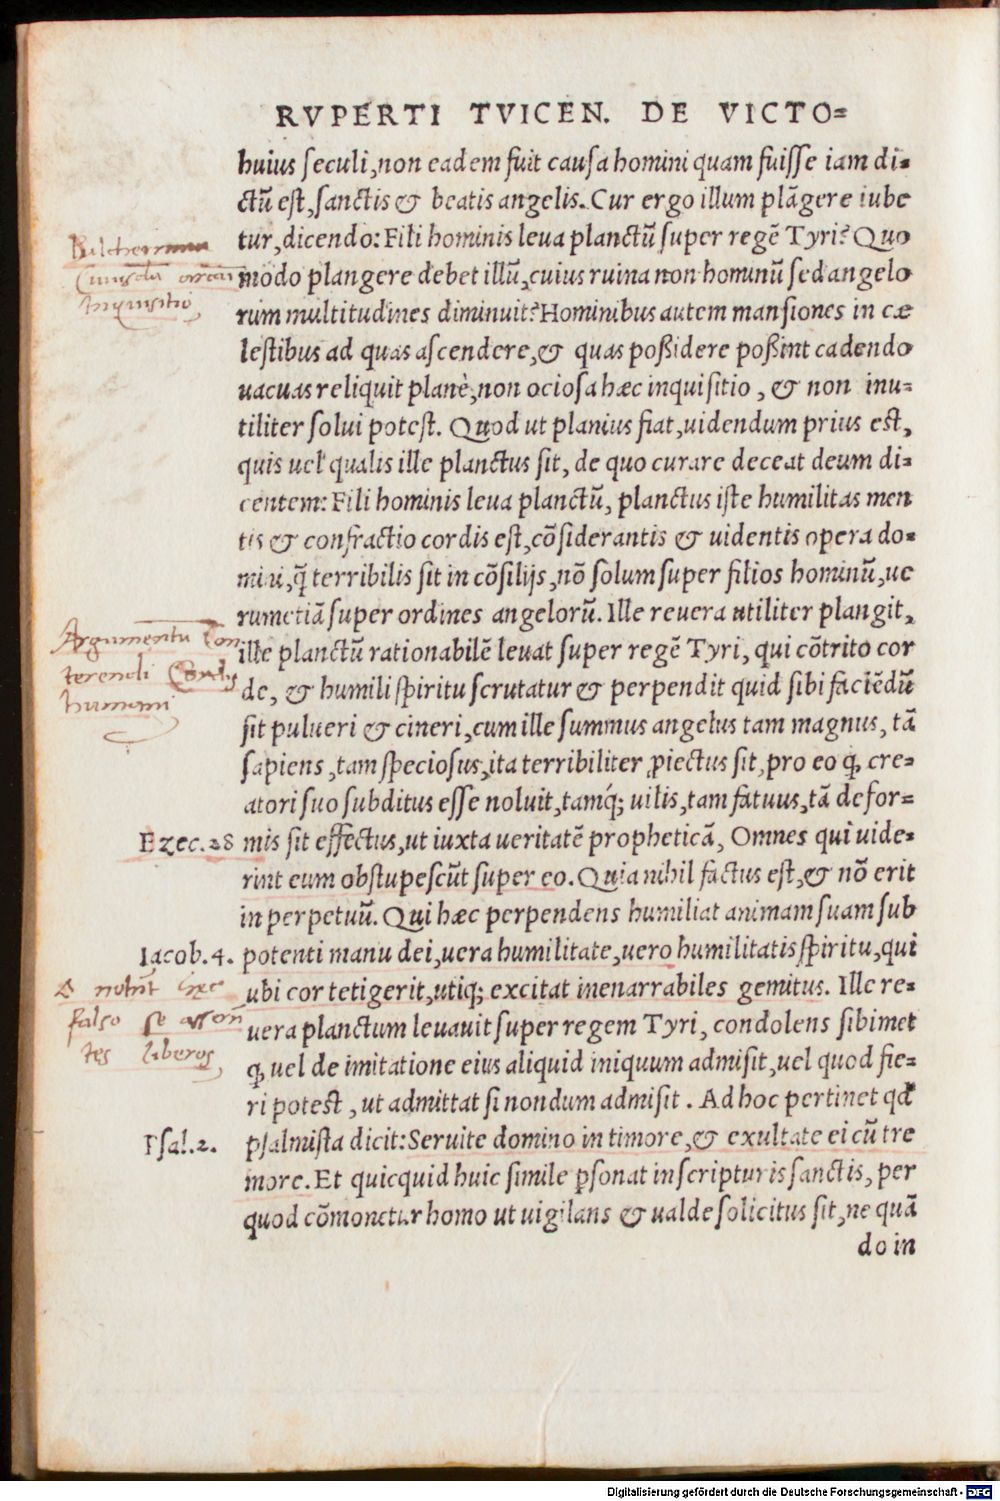 RVPERTI TVICEN. DE VICTO=
huius seculi, non eadem fuit causa homini quam fuisse iam di=
ctũ est, sanctis & beatis angelis. Cur ergo illum plãgere iube
tur, dicendo: Fili hominis leua planctũ super regẽ Tyri? Quo
modo plangere debet illũ, cuius ruina non hominũ sed angelo
rum multitudines diminuit? Hominibus autem mansiones in cæ
lestibus ad quas ascendere, & quas poßidere poßint cadendo
uacuas reliquit planè, non ociosa hæc inquisitio, & non inu=
tiliter solui potest. Quod ut planius fiat, uidendum prius est,
quis uel qualis ille planctus sit, de quo curare deceat deum di=
centem: Fili hominis leua planctũ, planctus iste humilitas men
tis & confractio cordis est, cõsiderantis & uidentis opera do=
mini, q̃ terribilis sit in cõsilijs, nõ solum super filios hominũ, ue
rumetiã super ordines angelorũ. Ille reuera utiliter plangit,
ille planctũ rationabilẽ leuat super regẽ Tyri, qui cõtrito cor
de, & humili spiritu scrutatur & perpendit quid sibi faciẽdũ
sit pulueri & cineri, cum ille summus angelus tam magnus, tã
sapiens, tam speciosus, ita terribiliter ꝓiectus sit, pro eo ꝙ cre=
atori suo subditus esse noluit, tamq́; uilis, tam fatuus, tã defor=
Ezec. 28 mis sit effectus, ut iuxta ueritatẽ propheticã, Omnes qui uide=
rint eum obstupescũt super eo. Quia nihil factus est, & nõ erit
in perpetuũ. Qui hæc perpendens humiliat animam suam sub
Iacob. 4. potenti manu dei, uera humilitate, uero humilitatis spiritu, qui
ubi cor tetigerit, utiq; excitat inenarrabiles gemitus. Ille re=
uera planctum leuauit super regem Tyri, condolens sibimet
ꝙ uel de imitatione eius aliquid iniquum admisit, uel quod fie=
ri potest, ut admittat si nondum admisit. Ad hoc pertinet qď
Psal. 2. psalmista dicit: Seruite domino in timore, & exultate ei cũ tre
more. Et quicquid huic simile ꝑsonat in scripturis sanctis, per
quod cõmonetur homo ut uigilans & ualde solicitus sit, ne quã
do in
cuiusdã
Inquisitio
Argumentũ Con
terendi Cordis
humani
falso se
tes liberos
Digitalisierung gefördert durch die Deutsche Forschungsgemeinschaft - DFG